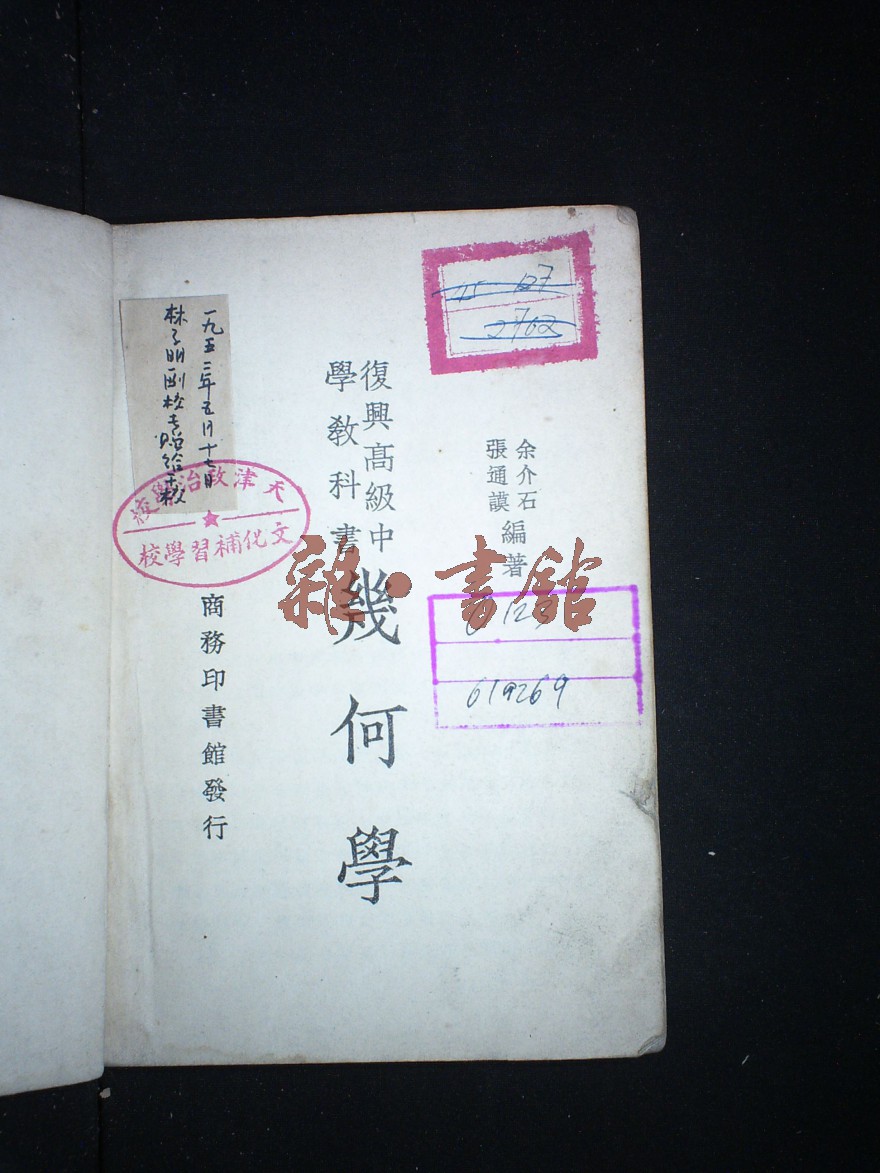 余介石
張通謨
編著
復興高級中
學教科書
幾何學
商務印書館發行
一九五二年五月十七日
林子明副校長贈給本校
天津政治學校
文化補習學校
2762
619269
雜·書館